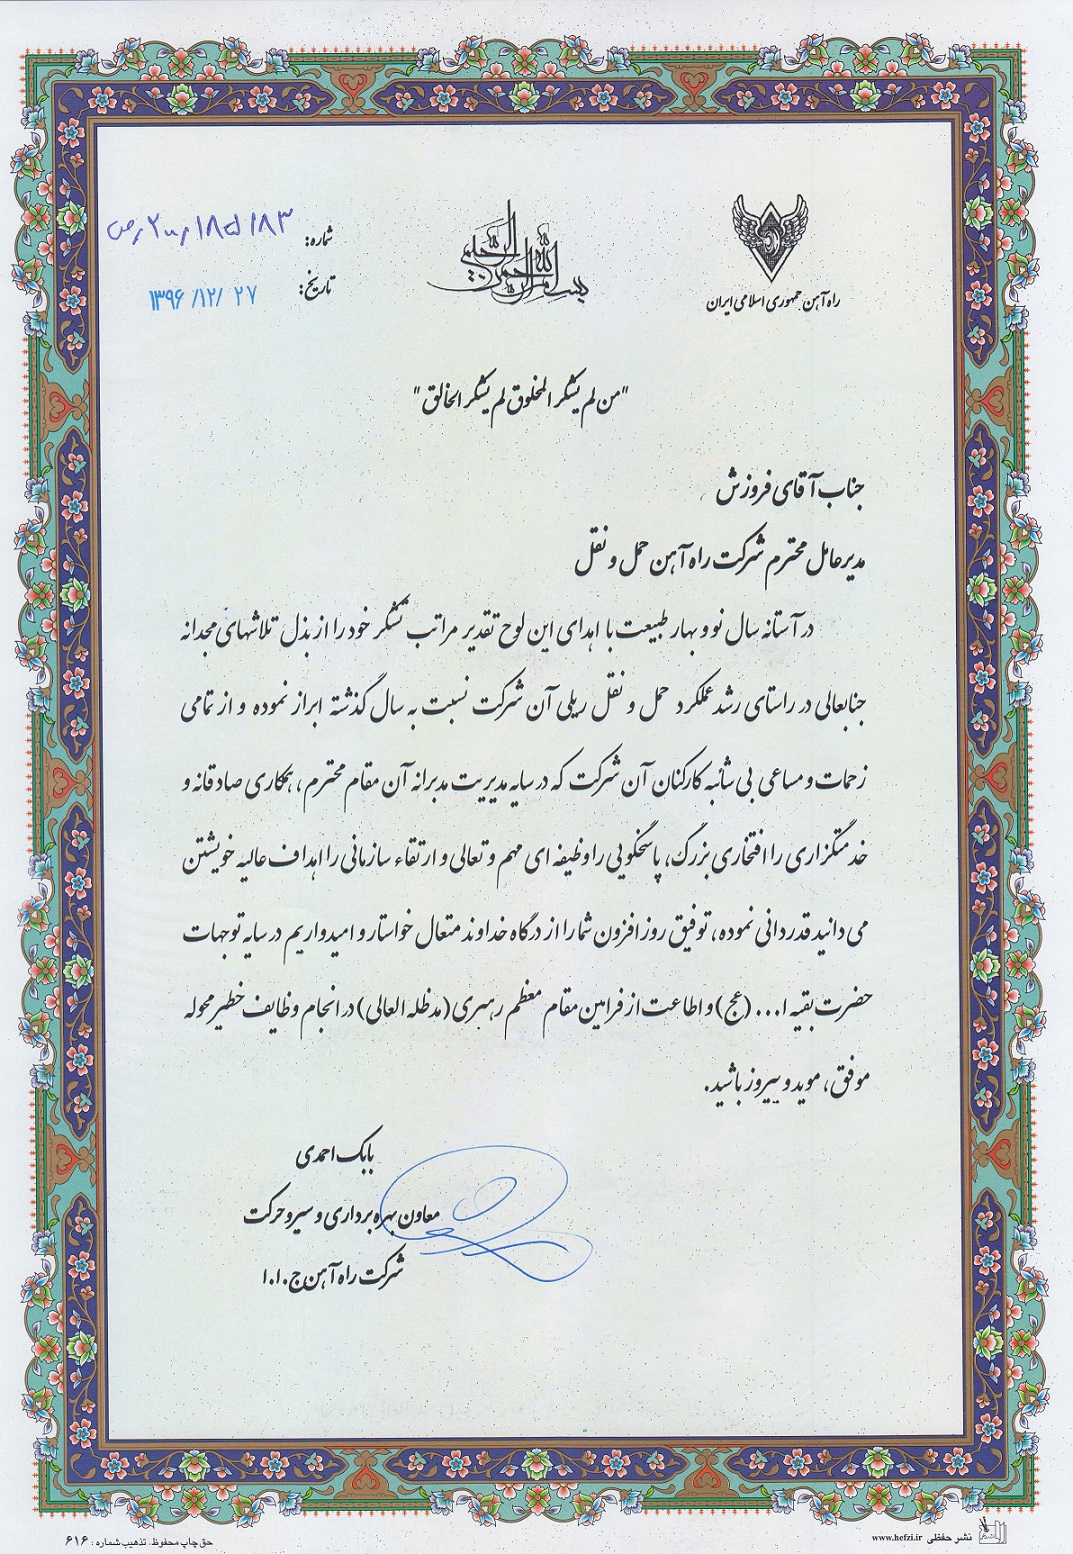 بسم الله الرحمن الرحیم
راه آهن جمهوری اسلامی ایران
شماره:
تاریخ: ۱۳۹۶/۱۲/۲۷
"من لم یشکر المخلوق لم یشکر الخالق"
جناب آقای فروزش
مدیرعامل محترم شرکت راه آهن حمل و نقل
در آستانه سال نو و بهار طبیعت با اهدای این لوح تقدیر مراتب تشکر خود را از بذل تلاشهای مجدانه
جنابعالی در راستای رشد عملکرد حمل و نقل ریلی آن شرکت نسبت به سال گذشته ابراز نموده و از تمامی
زحمات و مساعی بی شائبه کارکنان آن شرکت که در سایه مدیریت مدبرانه آن مقام محترم، همکاری صادقانه و
خدمتگزاری را افتخاری بزرگ، پاسخگویی را وظیفه ای مهم و تعالی و ارتقاء سازمانی را اهداف عالیه خویشتن
می دانید قدردانی نموده، توفیق روزافزون شما را از درگاه خداوند متعال خواستار و امیدواریم در سایه توجهات
حضرت بقیه ا... (عج) و اطاعت از فرامین مقام معظم رهبری (مدظله العالی) در انجام وظایف خطیر محوله
موفق، موید و پیروز باشید.
بابک احمدی
معاون بهره برداری و سیر و حرکت
شرکت راه آهن ج.ا.ا
نشر حفظی www.hefzi.ir
حق چاپ محفوظ. تذهیب شماره: ۶۱۶